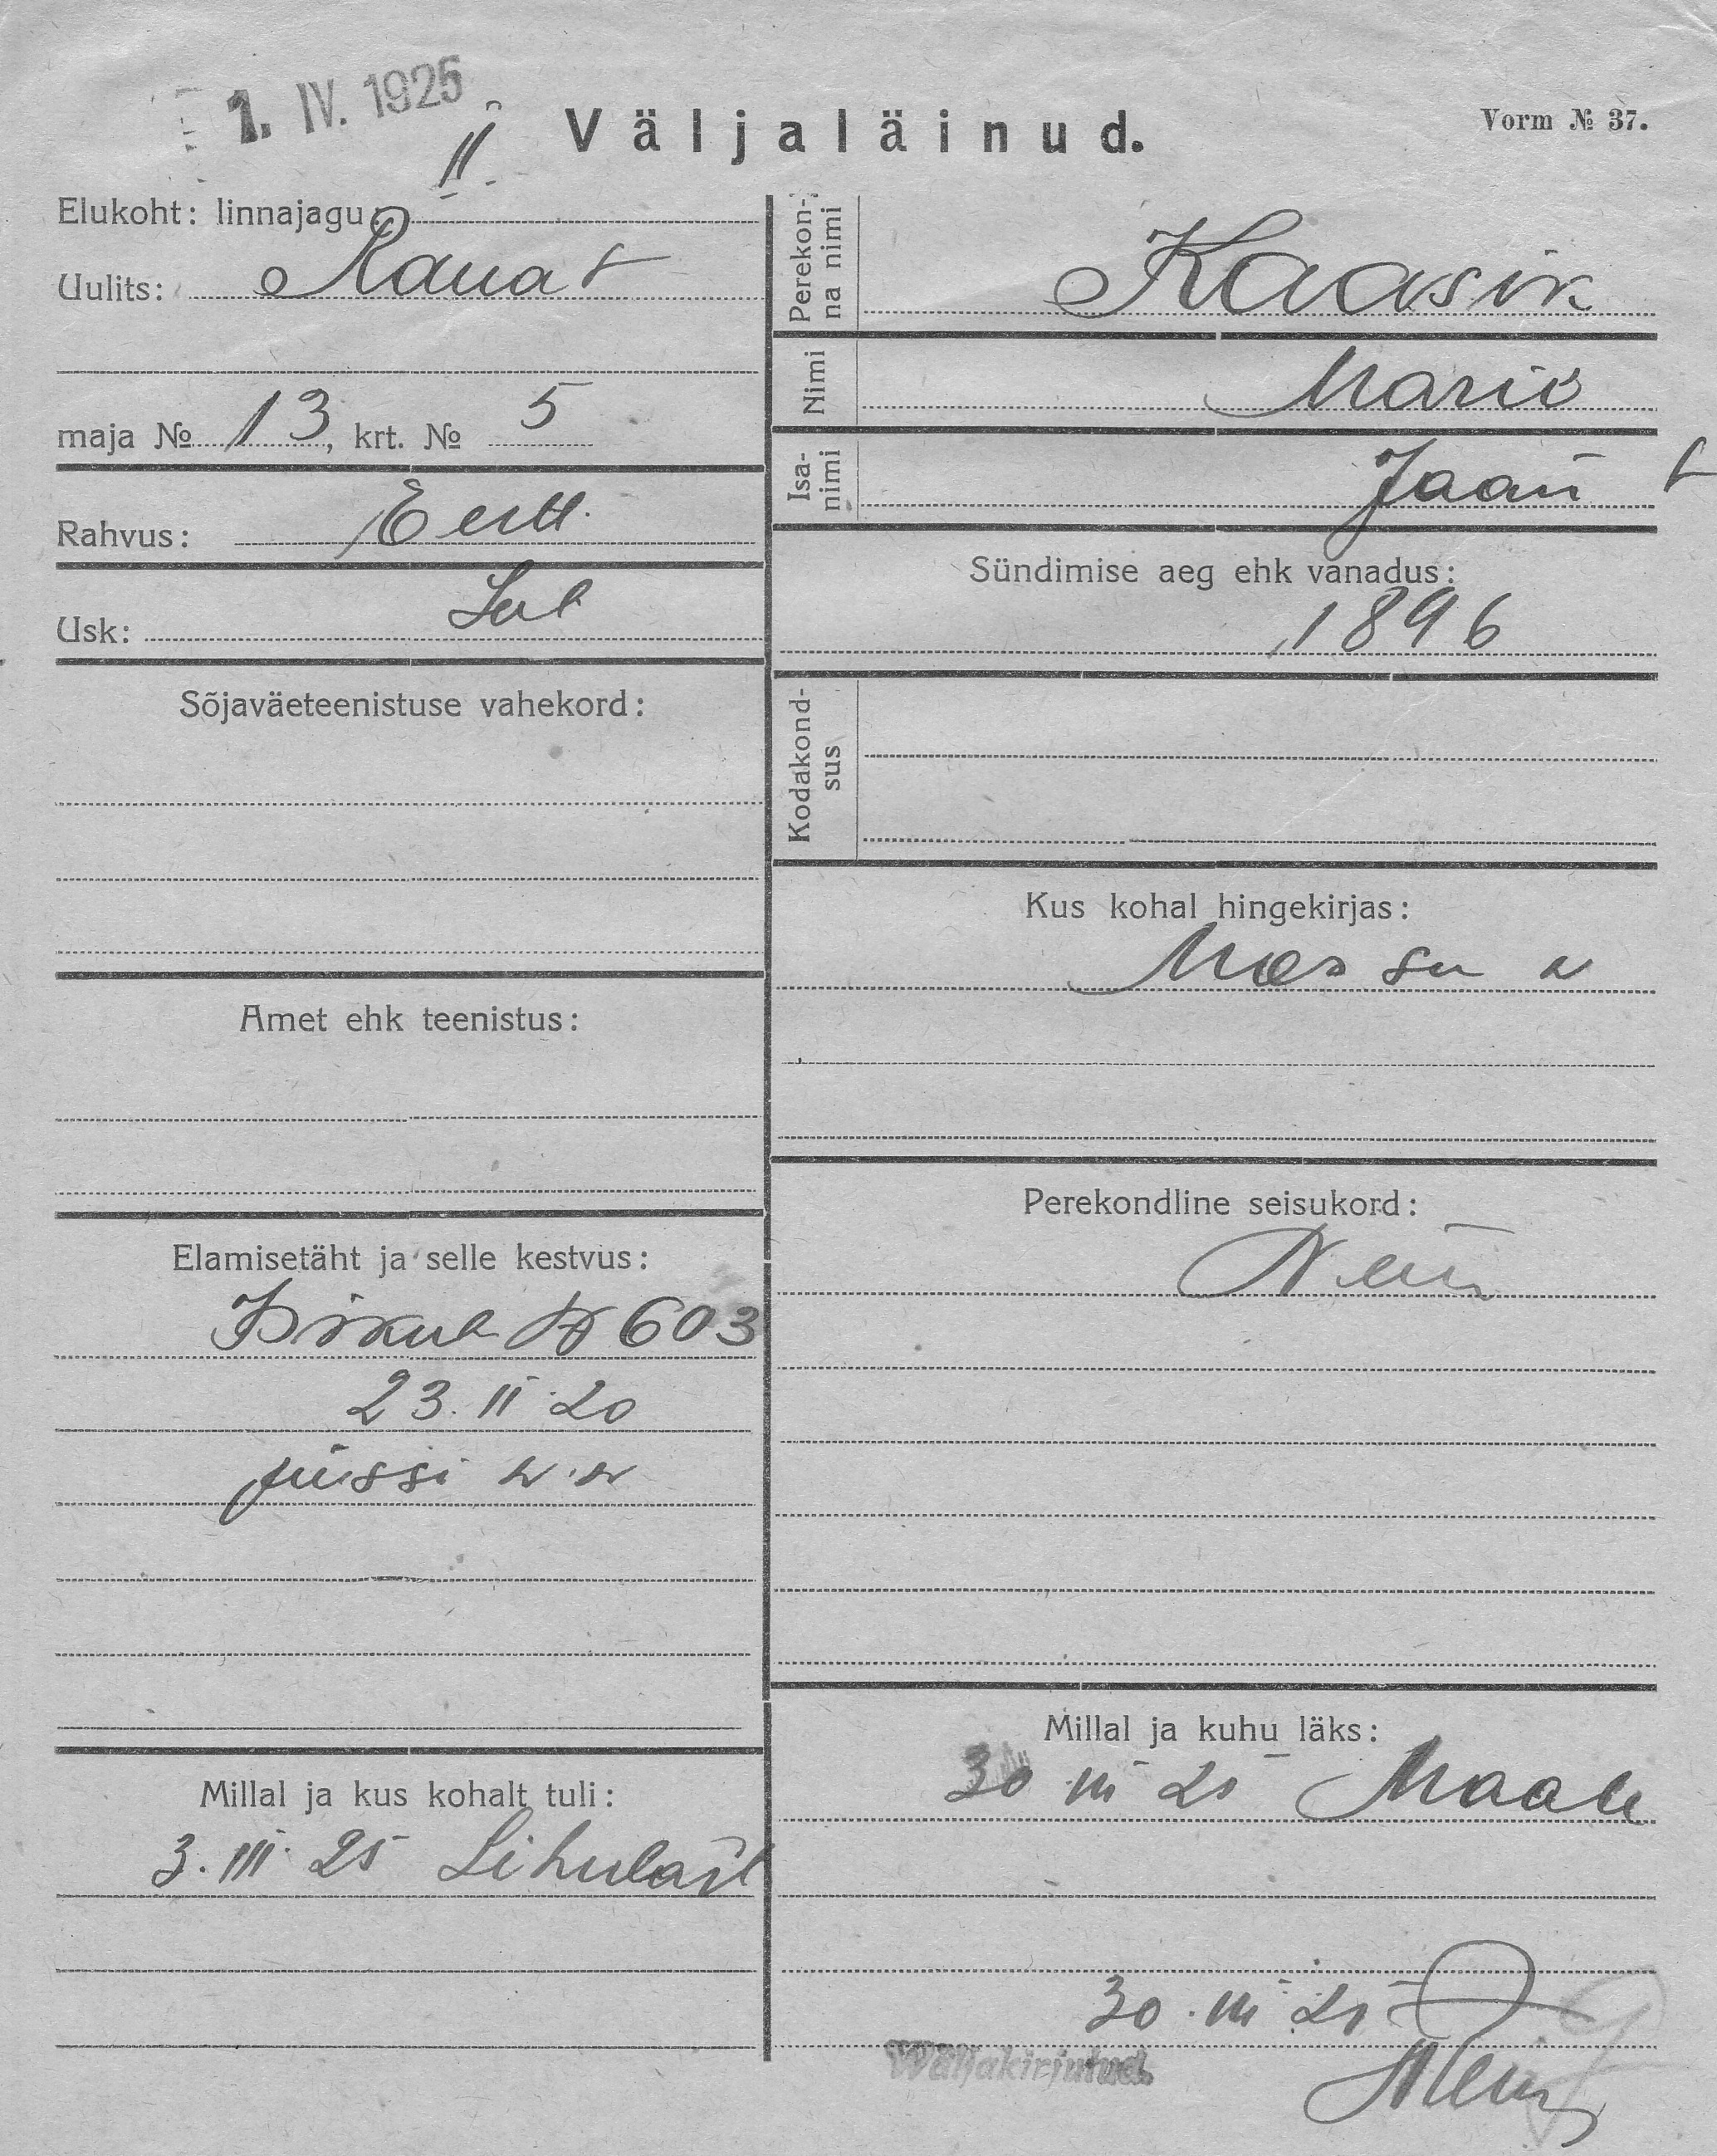 1. IV. 1925
Väljaläinud.
Vorm № 37.
Elukoht: linnajagu: II
Uulits: Raua t
maja № 13, krt. № 5
Rahvus: Eesti
Usk: Lut
Sõjaväeteenistuse vahekord:
Amet ehk teenistus:
Elamisetäht ja selle kestvus:
Isikut № 603
23. II 20
w.w
Millal ja kus kohalt tuli:
3. III 25 Lihulast
Perekon-
na nimi
Kaasik
Nimi
Marie
Isa-
nimi
Jaan t
Sündimise aeg ehk vanadus:
1896
Kodakond-
sus
Kus kohal hingekirjas:
w
Perekondline seisukord:
Neiu
Millal ja kuhu läks:
30 III 25 Maale
30. III 25
Wäljakirjutud.